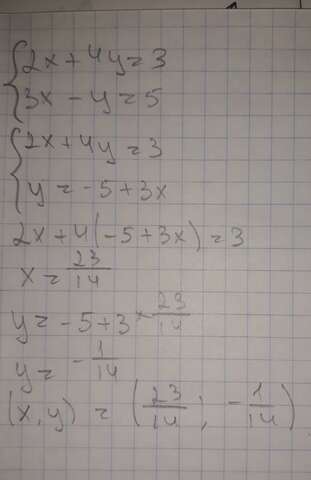 2x + 4y = 3
3x - y = 5
2x + 4y = 3
y = -5 + 3x
2x + 4(-5 + 3x) = 3
x = 23/14
y = -5 + 3 × 23/14
y = - 1/14
(x, y) = (23/14 ; - 1/14)